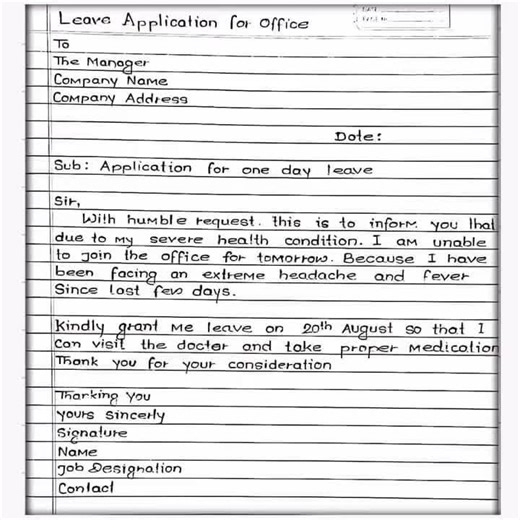 Leave Application for Office
To
The Manager
Company Name
Company Address
Date:
Sub: Application for one day leave
Sir,
With humble request. This is to inform you that
due to my severe health condition. I am unable
to join the office for tomorrow. Because I have
been facing an extreme headache and fever
Since last few days.
Kindly grant me leave on 20th August so that I
Can visit the doctor and take proper medication
Thank you for your consideration
Thanking You
Yours Sincerly
Signature
Name
Job Designation
Contact